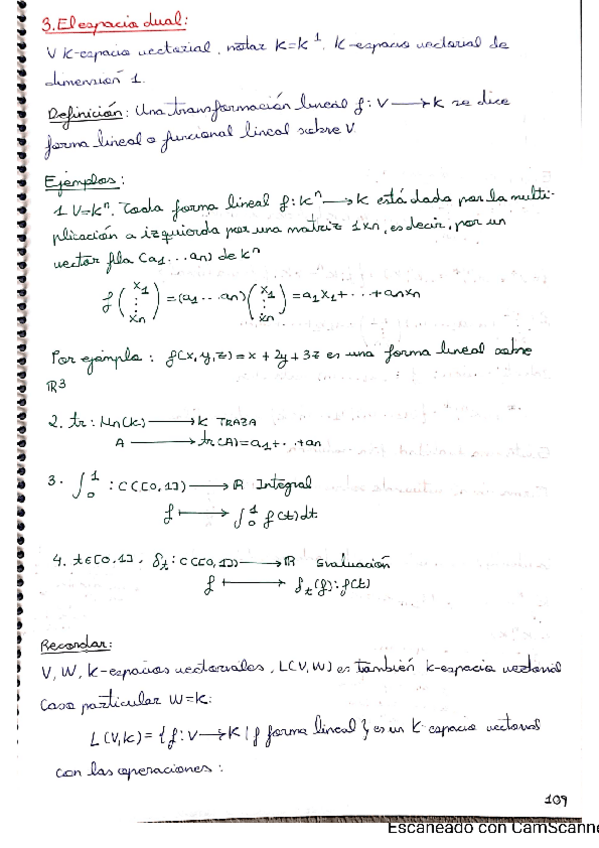 3. El espacio dual:
V K-espacio vectorial, notar K=K¹, K-espacio vectorial de
dimensión 1.
Definición: Una transformación lineal f: V ⟶ K se dice
forma lineal o funcional lineal sobre V.
Ejemplos:
1 V=Kⁿ. Toda forma lineal f: Kⁿ ⟶ K está dada por la multi-
plicación a izquierda por una matriz 1xn, es decir, por un
vector fila (a₁ ... an) de Kⁿ
f(x₁ ⋮ xn) = (a₁ ... an)(x₁ ⋮ xn) = a₁x₁ + ... + anxn
Por ejemplo: f(x,y,z) = x + 2y + 3z es una forma lineal sobre
ℝ3
2. tr: Mn(K) ⟶ K TRAZA
A ⟶ tr(A) = a₁ + ... + an
3. ∫₀¹ : C([0,1]) ⟶ ℝ Integral
f ⟼ ∫₀¹ f(t)dt
4. t∈[0,1], δt: C([0,1]) ⟶ ℝ Evaluación
f ⟼ δt(f): f(t)
Recordar:
V, W, K-espacios vectoriales, L(V,W) es también K-espacio vectorial
Caso particular W=K:
L(V,K) = {f: V ⟶ K | f forma lineal} es un K-espacio vectorial
con las operaciones:
109
Escaneado con CamScanne